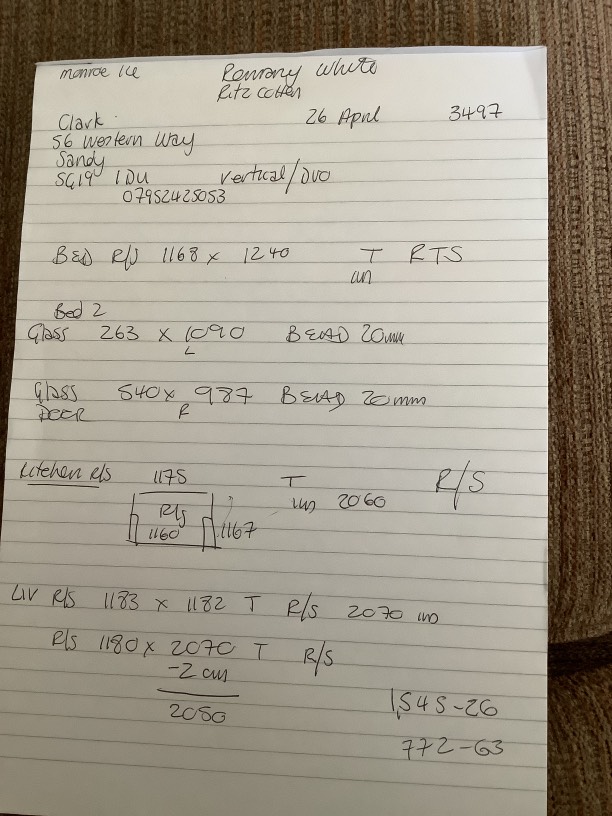 monroe Ice Romany White
Ritz Cotten
Clark 26 April 3497
56 Western Way
Sandy
SG19 1DU Vertical/Duo
07952425053
BED R/S 1168 x 1240 T RTS
un
Bed 2
Glass 263 x 1090 BEAD 20mm
L
Glass 540 x 987 BEAD 20mm
DOOR R
Kitchen R/s 1175 T R/S
un 2060
R/s
1160 1167
LIV R/s 1183 x 1182 T R/s 2070 un
R/s 1180 x 2070 T R/S
-2 cm
2050
1,545-26
772-63